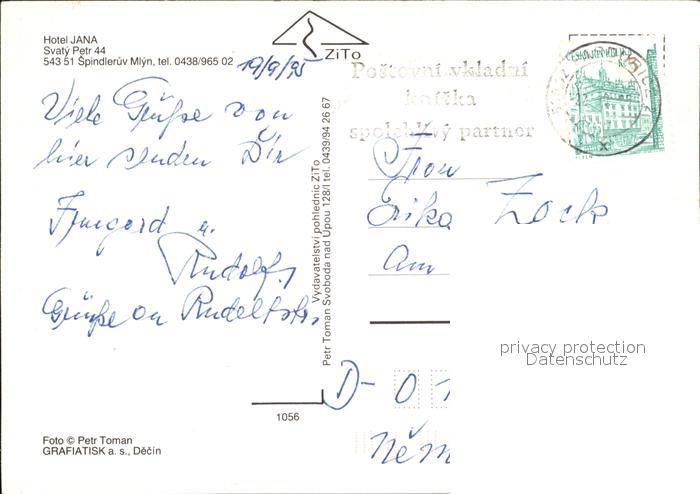 Hotel JANA
Svatý Petr 44
543 51 Špindlerův Mlýn, tel. 0438/965 02
ZiTo
19/9/95
Poštovní vkladní
knížka
spolehlivý partner
Viele Grüße von
hier senden Dir
Irmgard u.
Rudolf.
Grüße an
Vydavatelství pohlednic ZiTo
Petr Toman Svoboda nad Úpou 128/I tel. 0439/94 26 67
Frau
Erika Zock
Am
privacy protection
Datenschutz
D- 0
Něm
1056
Foto © Petr Toman
GRAFIATISK a. s., Děčín